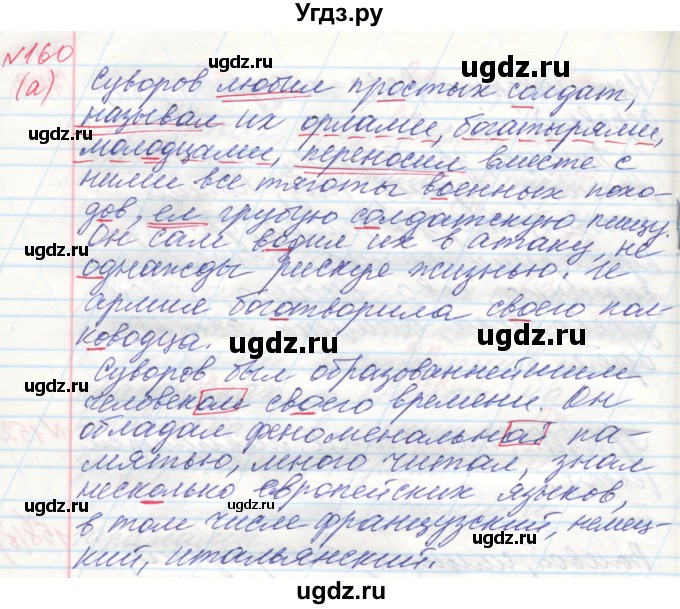 Угдз.ру
№160
(а)
Суворов любил простых солдат,
называл их орлами, богатырями,
молодцами, переносил вместе с
ними все тяготы военных похо-
дов, ел грубую солдатскую пищу.
Он сам водил их в атаку, не
однажды рискуя жизнью. И
армия боготворила своего пол-
ководца.
Суворов был образованнейшим
человеком своего времени. Он
обладал феноменальной па-
мятью, много читал, знал
несколько европейских языков,
в том числе французский, немец-
кий, итальянский.
ugdz.ru
ugdz.ru
ugdz.ru
ugdz.ru
ugdz.ru
ugdz.ru
ugdz.ru
ugdz.ru
ugdz.ru
ugdz.ru
ugdz.ru
ugdz.ru
ugdz.ru